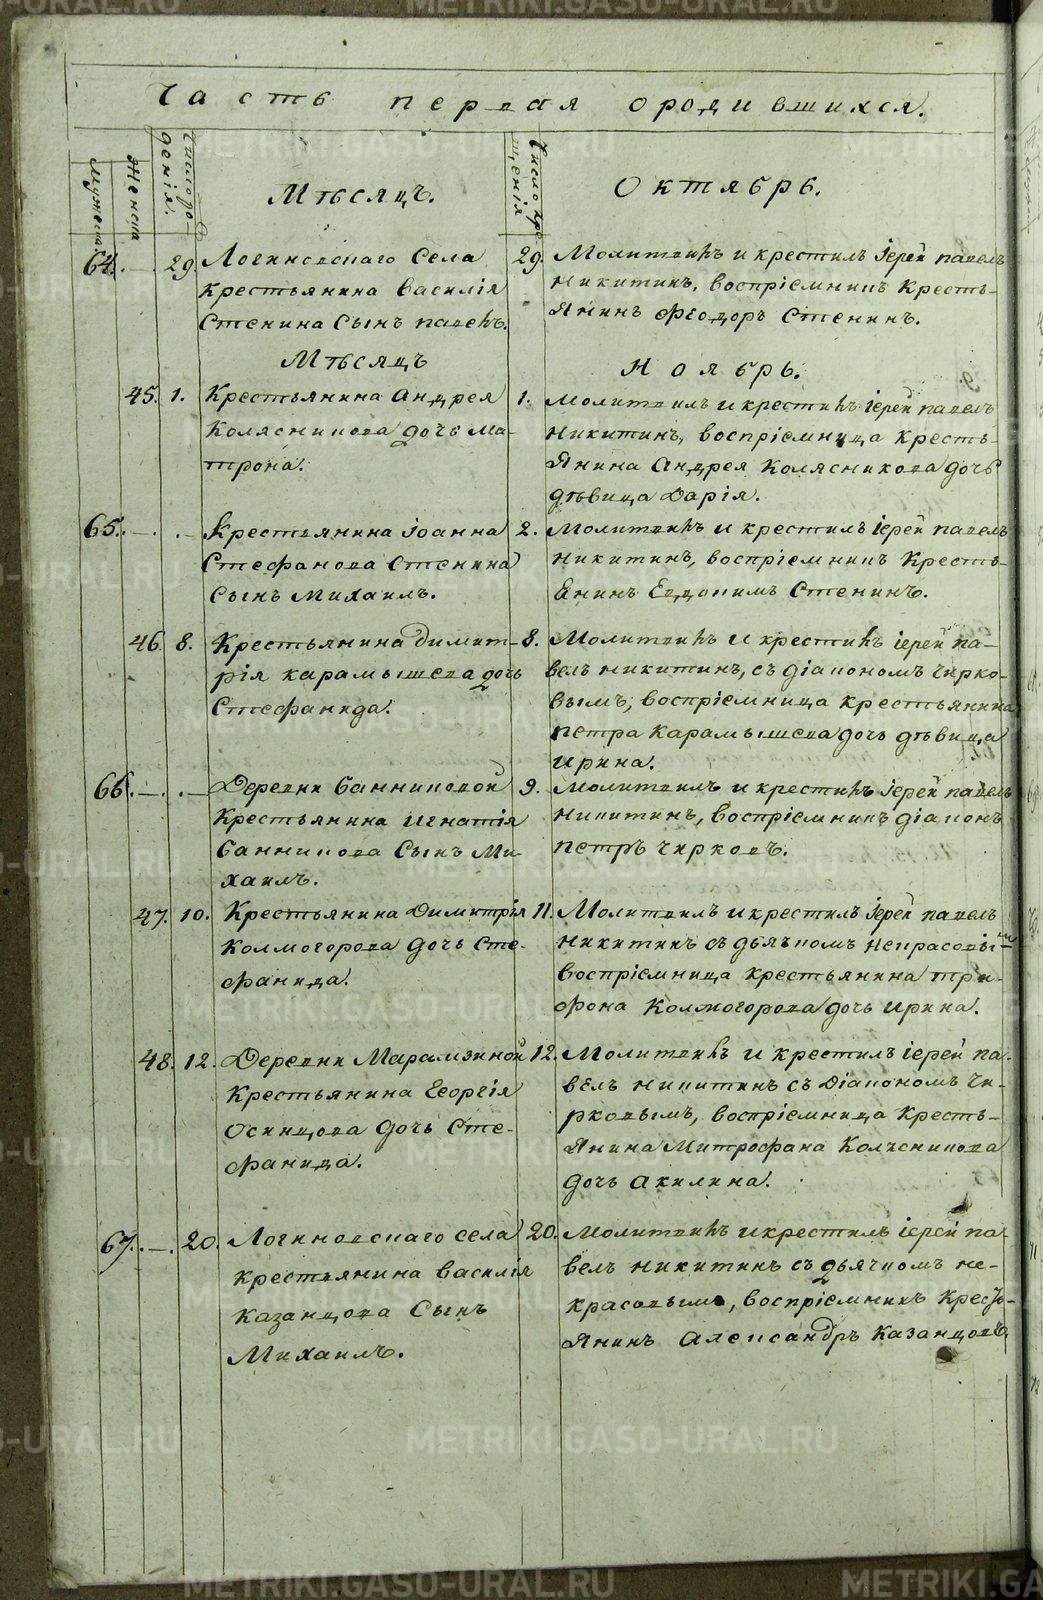 Часть первая ородившихся.
Мужеска.
Женска
Число ро-
денія.
Мѣсяцъ.
Число кре
щенія
Октябрь.
64. — 29. Логиновскаго Села
крестьянина Василія
Стенина Сынъ павелъ.
29. Молитвилъ и крестилъ Іерей павелъ
Никитинъ, воспріемникъ Кресть-
янинъ Феодоръ Стенинъ.
Мѣсяцъ
Ноябрь.
45. 1. Крестьянина Андрея
Колясникова дочь Ма-
трона.
1. Молитвилъ и крестилъ іерей павелъ
Никитинъ, воспріемница кресть-
янина Андрея Колясникова дочь
дѣвица Дарія.
65. — . — Крестьянина іоанна
Стефанова Стенина
Сынъ Михаилъ.
2. Молитвилъ и крестилъ іерей павелъ
Никитинъ, воспріемникъ Кресть-
янинъ Евдокимъ Стенинъ.
46. 8. Крестьянина димит-
рія карамышева дочь
Стефанида.
8. Молитвилъ и крестилъ іерей па-
велъ никитинъ, съ діакономъ чирко-
вымъ, воспріемница крестьянина
петра карамышева дочь дѣвица
ирина.
66. — . — Деревни банниковой
крестьянина игнатія
банникова Сынъ Ми-
хаилъ.
9. Молитвилъ и крестилъ іерей павелъ
Никитинъ, воспріемникъ діаконъ
петръ чирковъ.
47. 10. Крестьянина Димитрія
Колмогорова дочь Сте-
фанида.
11. Молитвилъ и крестилъ іерей павелъ
никитинъ съ дьячкомъ некрасовы-
мъ
воспріемница крестьянина три-
фона Колмогорова дочь ирина.
48. 12. Деревни Марамзиной
крестьянина Георгія
Осинцова дочь Сте-
фанида.
12. Молитвилъ и крестилъ іерей па-
велъ никитинъ съ діакономъ чи-
рковымъ, воспріемница кресть-
янина Митрофана Колясникова
дочь акилина.
67. . — . 20. Логиновскаго села
крестьянина василія
казанцова Сынъ
Михаилъ.
20. Молитвилъ и крестилъ іерей па-
велъ никитинъ съ дьячкомъ не-
красовымъ, воспріемникъ кресть-
янинъ александръ казанцовъ.
METRIKI.GASO-URAL.RU